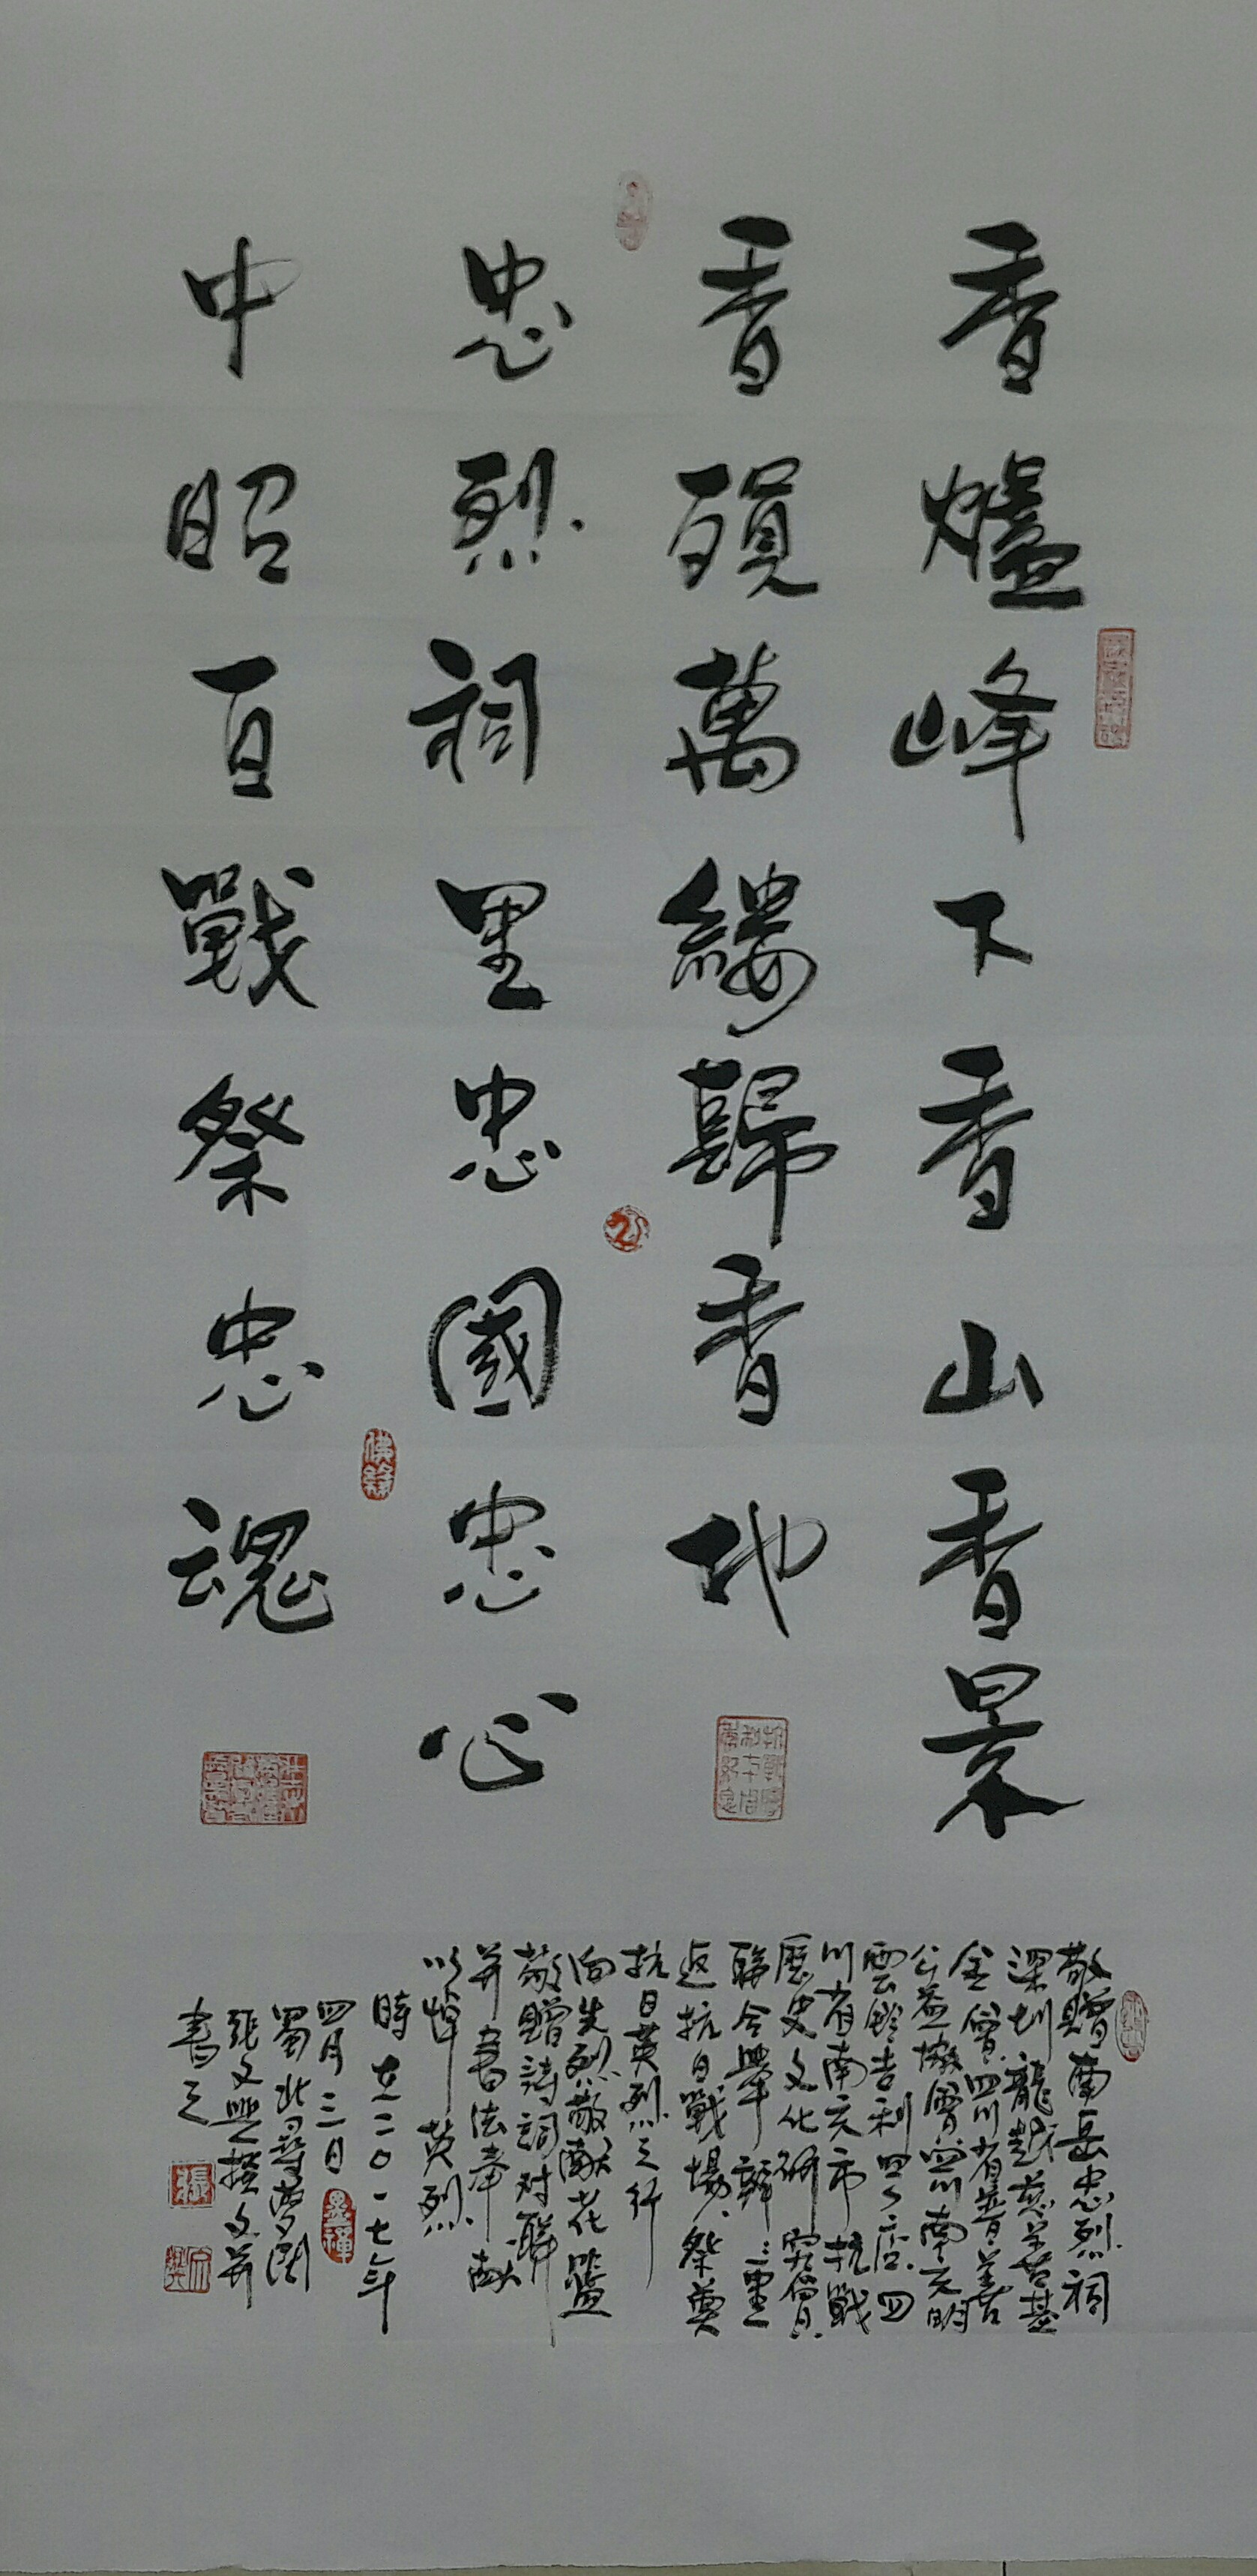 香爐峰下香山香景
香殞萬縷歸香地
忠烈祠里忠國忠心
中昭百戰祭忠魂
敬贈南岳忠烈祠
深圳龍越慈善基
金會四川省普善
公益協會四川南充明
雲鄉吉利四S店四
川省南充市抗戰
歷史文化研究會
聯合舉辦重
返抗日戰場祭奠
抗日英烈之行
向先烈敬獻花籃
敬贈詩詞对聯
并書法奉獻
以悼英烈
時在二〇一七年
四月三日
蜀北尋夢閣
張文興撰文并
書之
佛緣
墨禪